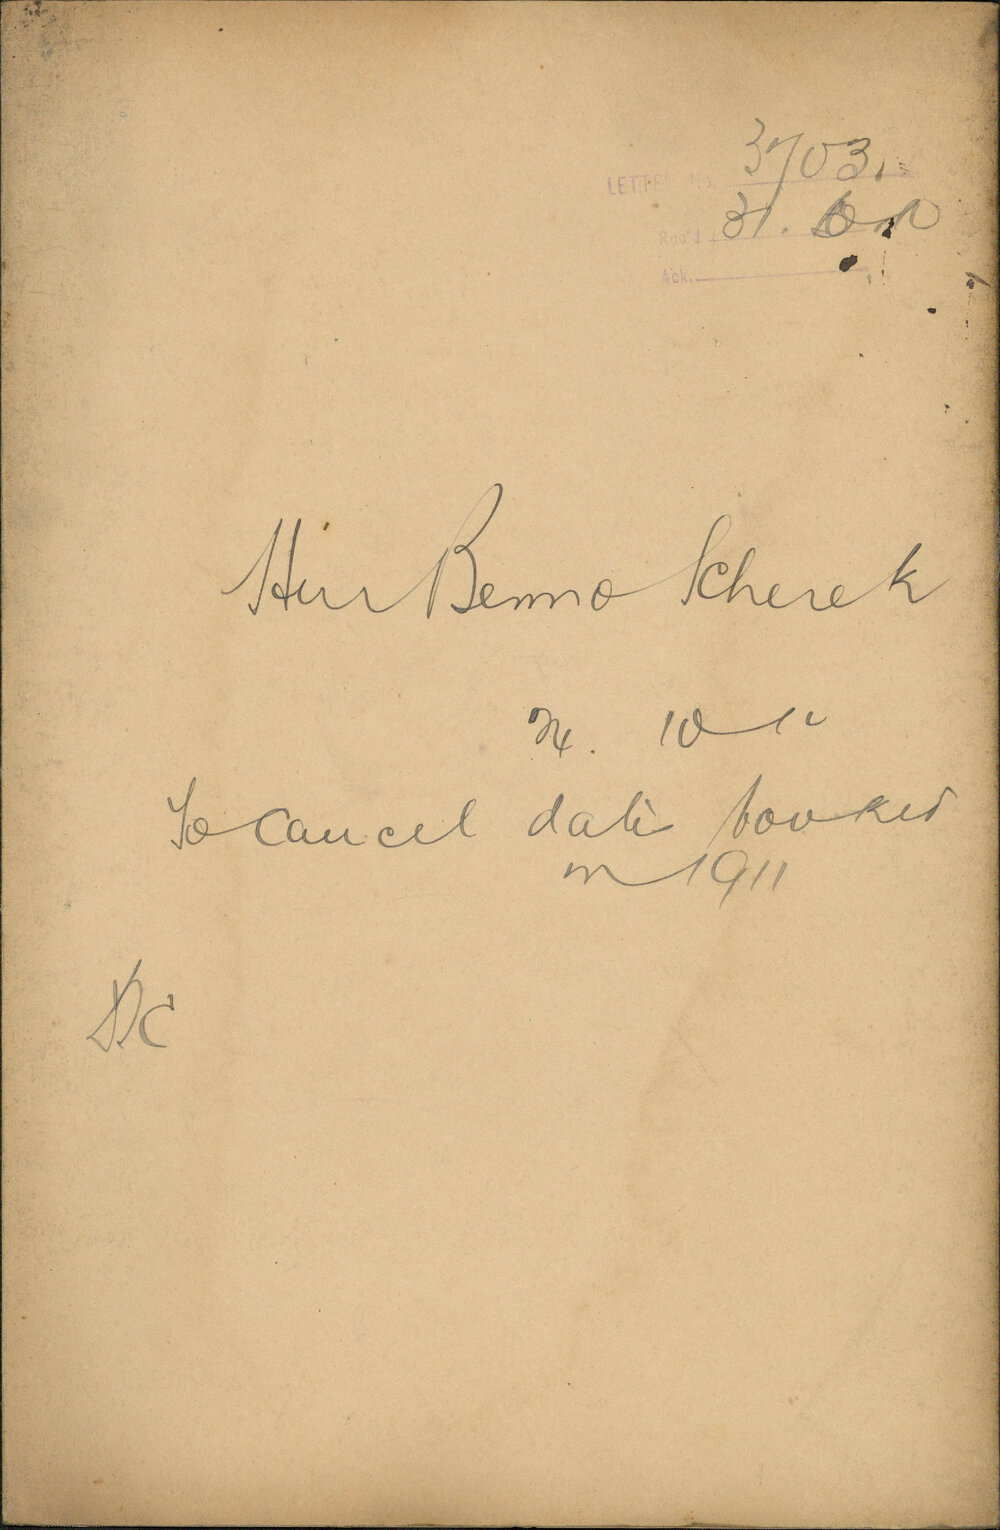 LETTER No. 3703.
Rec'd 31.
Ack.
Herr Benno Scherek
24. 10
To Cancel date booked
in 1911